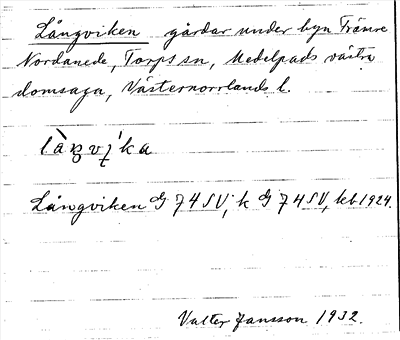 Långviken gårdar under byn Främre
Nordanede, Torps sn, Medelpads västra
domsaga, Västernorrlands l.
Långviken G 74 SV; k G 74 SV, kb 1924.
Valter Jansson 1932.